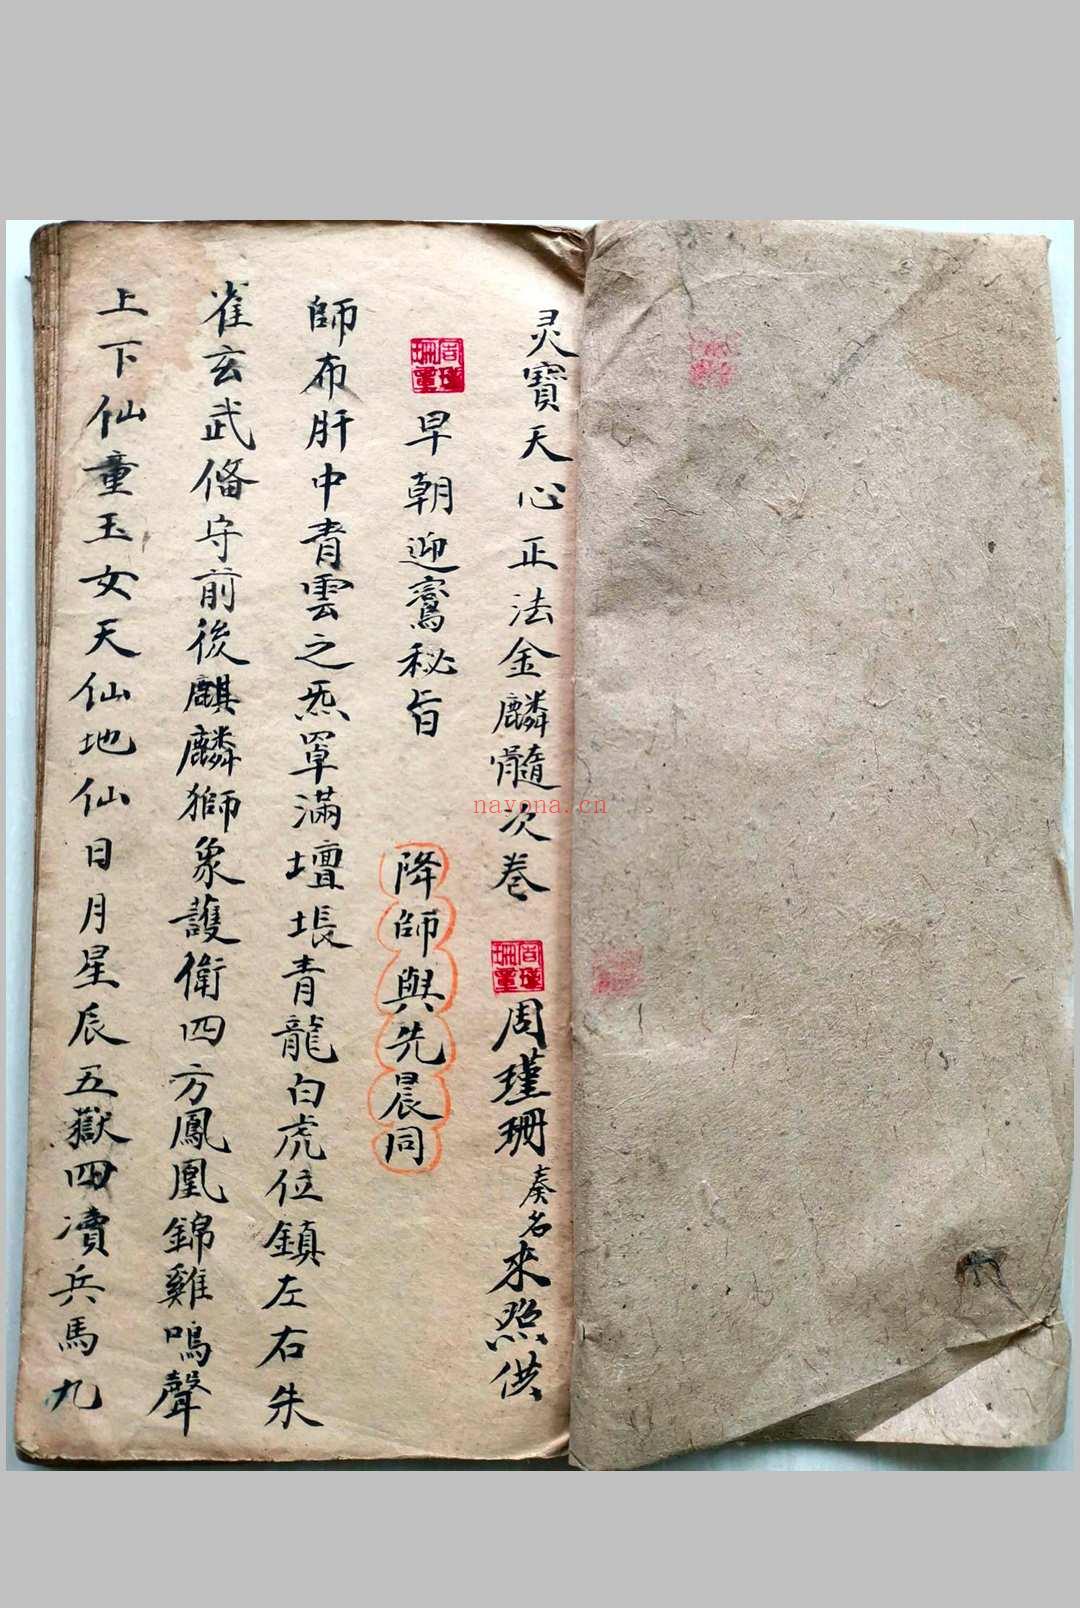 灵寶天心正法金麟髓次卷 周瑾珊 奏名 来照供
早朝迎鸞秘旨 降師與先晨同
師布肝中青雲之炁罩滿壇場青龍白虎位鎮左右朱
雀玄武俻守前後麒麟獅象護衛四方鳳凰錦雞鳴聲
上下仙童玉女天仙地仙日月星辰五嶽四瀆兵馬九
周瑾珊璽
周瑾珊璽
nayona.cn